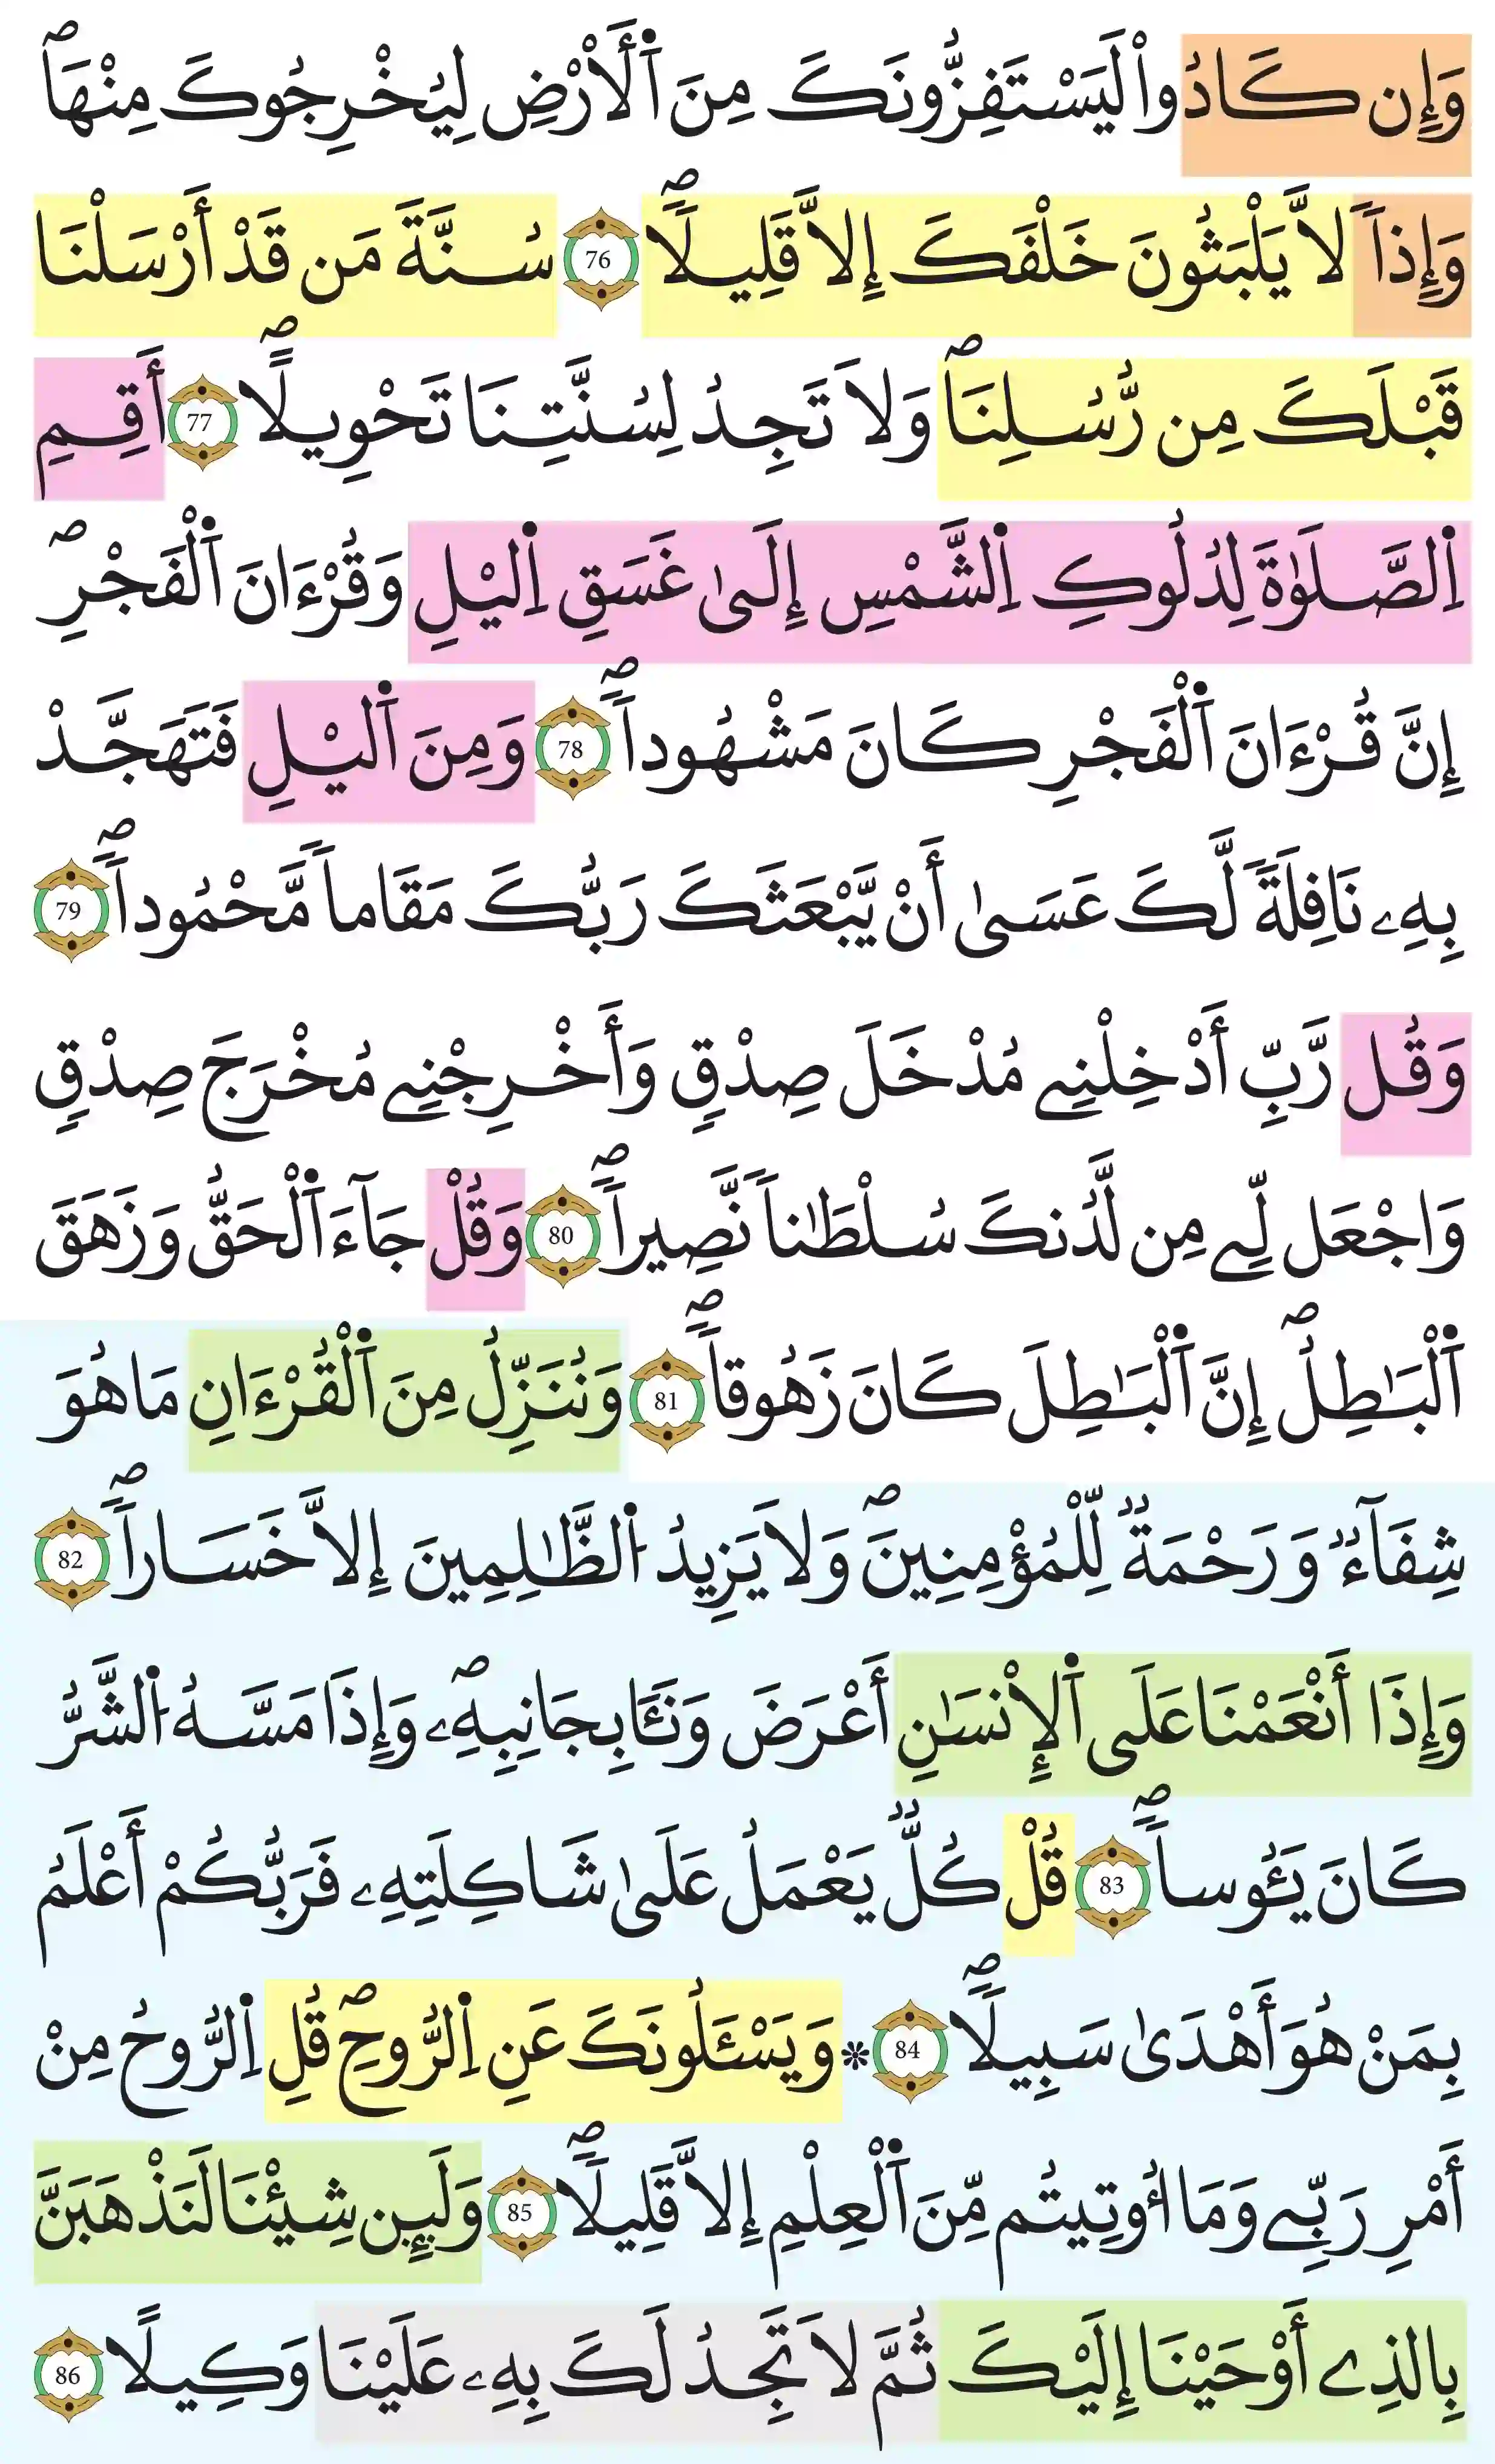 وَإِن كَادُواْ لَيَسْتَفِزُّونَكَ مِنَ اَ۬لَارْضِ لِيُخْرِجُوكَ مِنْهَاۖ
وَإِذاٗ لَّا يَلْبَثُونَ خَلْفَكَ إِلَّا قَلِيلاٗۖ 76 سُنَّةَ مَن قَدَ اَرْسَلْنَا
قَبْلَكَ مِن رُّسُلِنَاۖ وَلَا تَجِدُ لِسُنَّتِنَا تَحْوِيلاًۖ 77 أَقِمِ
اِ۬لصَّلَوٰةَ لِدُلُوكِ اِ۬لشَّمْسِ إِلَىٰ غَسَقِ اِ۬ليْلِ وَقُرْءَانَ اَ۬لْفَجْرِۖ
إِنَّ قُرْءَانَ اَ۬لْفَجْرِ كَانَ مَشْهُوداٗۖ 78 وَمِنَ اَ۬ليْلِ فَتَهَجَّدْ
بِهِۦ نَافِلَةٗ لَّكَ عَسَىٰ أَنْ يَّبْعَثَكَ رَبُّكَ مَقَاماٗ مَّحْمُوداٗۖ 79
وَقُل رَّبِّ أَدْخِلْنِے مُدْخَلَ صِدْقٖ وَأَخْرِجْنِے مُخْرَجَ صِدْقٖ
وَاجْعَل لِّے مِن لَّدُنكَ سُلْطَٰناٗ نَّصِيراٗۖ 80 وَقُلْ جَآءَ اَ۬لْحَقُّ وَزَهَقَ
اَ۬لْبَٰطِلُۖ إِنَّ اَ۬لْبَٰطِلَ كَانَ زَهُوقاٗۖ 81 وَنُنَزِّلُ مِنَ اَ۬لْقُرْءَانِ مَا هُوَ
شِفَآءٞ وَرَحْمَةٞ لِّلْمُؤْمِنِينَۖ وَلَا يَزِيدُ اُ۬لظَّٰلِمِينَ إِلَّا خَسَاراٗۖ 82
وَإِذَا أَنْعَمْنَا عَلَى اَ۬لْإِنسَٰنِ أَعْرَضَ وَنَـَٔا بِجَانِبِهِۦۖ وَإِذَا مَسَّهُ اُ۬لشَّرُّ
كَانَ يَـُٔوساٗۖ 83 قُلْ كُلّٞ يَعْمَلُ عَلَىٰ شَاكِلَتِهِۦ فَرَبُّكُمْ أَعْلَمُ
بِمَنْ هُوَ أَهْدَىٰ سَبِيلاٗۖ 84 * وَيَسْـَٔلُونَكَ عَنِ اِ۬لرُّوحِۖ قُلِ اِ۬لرُّوحُ مِنْ
أَمْرِ رَبِّے وَمَا أُوتِيتُم مِّنَ اَ۬لْعِلْمِ إِلَّا قَلِيلاٗۖ 85 وَلَئِن شِئْنَا لَنَذْهَبَنَّ
بِالذِے أَوْحَيْنَا إِلَيْكَ ثُمَّ لَا تَجِدُ لَكَ بِهِۦ عَلَيْنَا وَكِيلاً 86